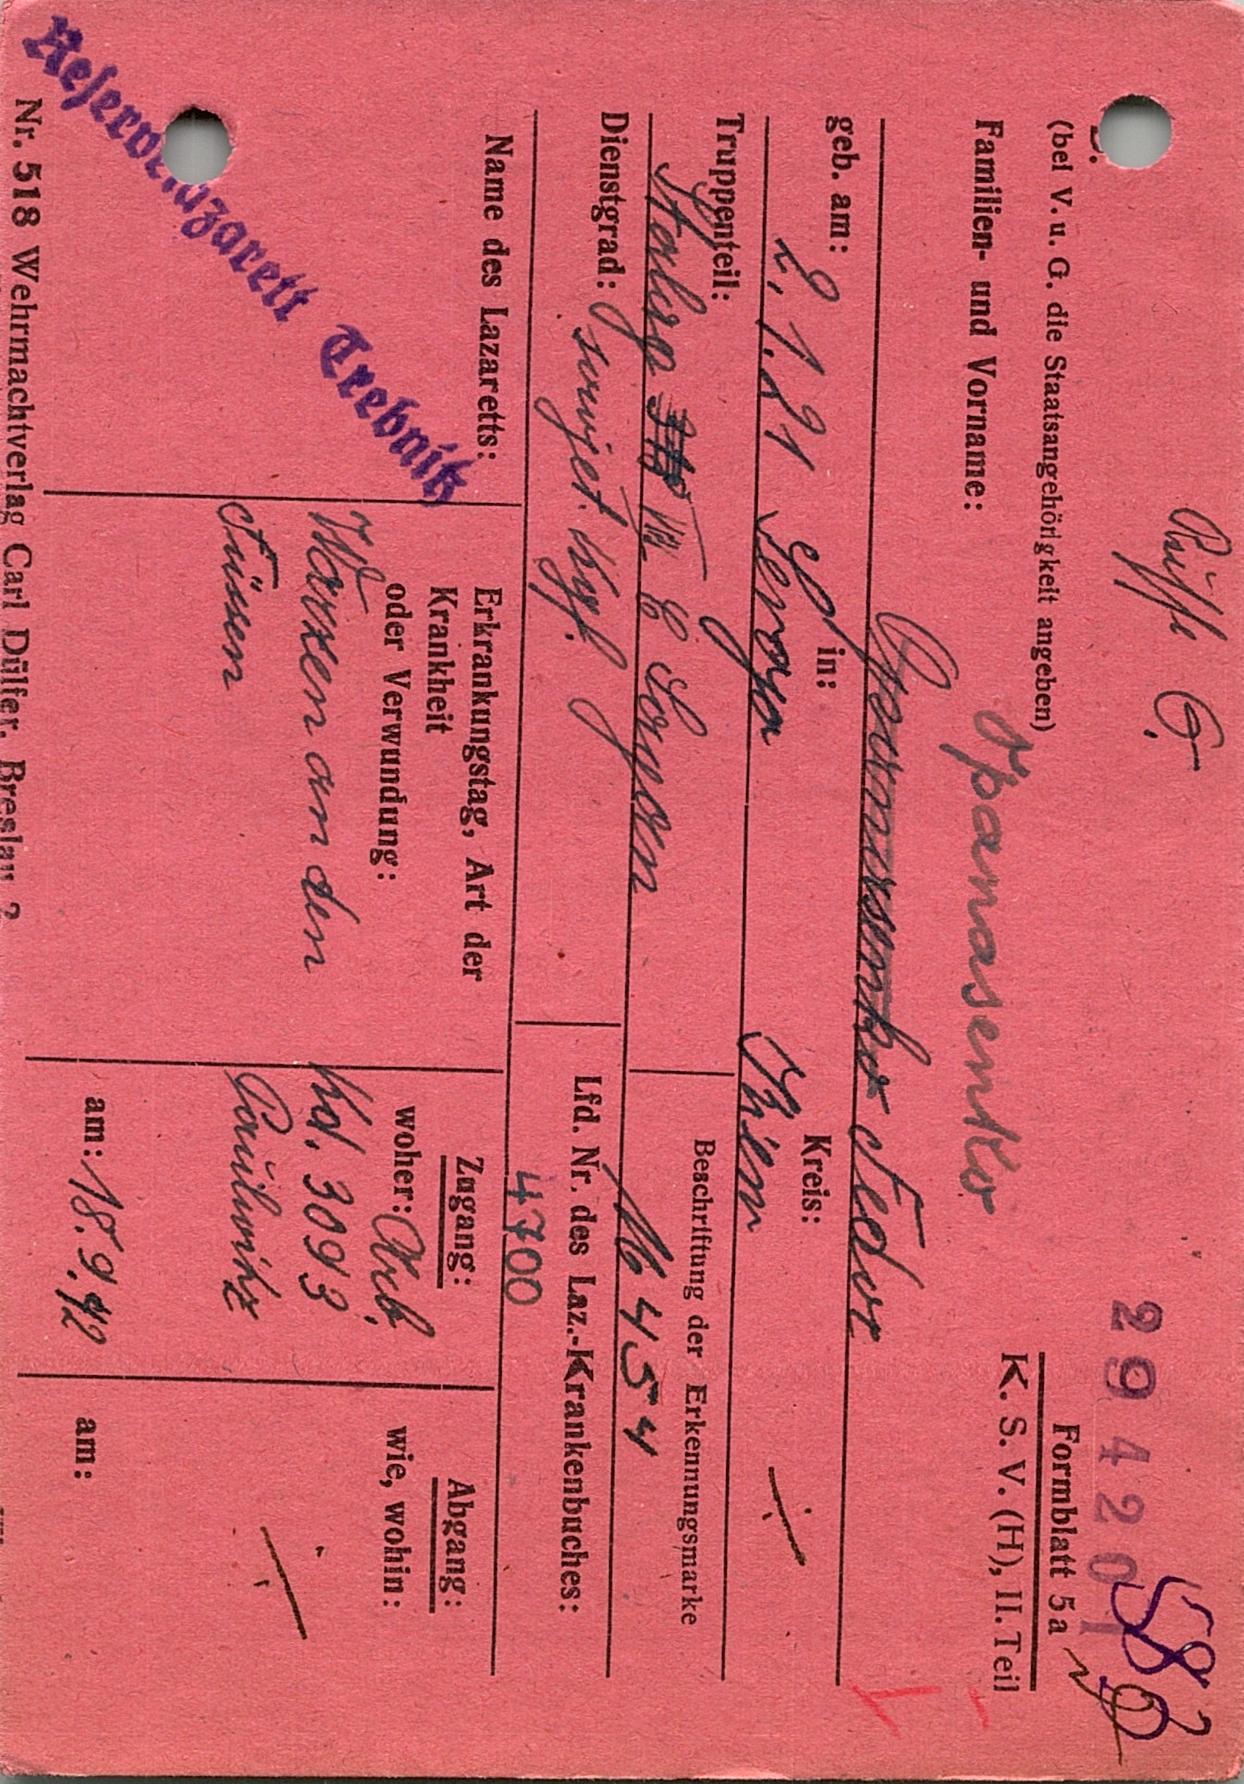 Russe G.
294201
582
(bei V. u. G. die Staatsangehörigkeit angeben)
Formblatt 5a
K. S. V. (H), II. Teil
Familien- und Vorname:
Apanasenko
Fedor
geb. am: 2. 1. 21 in: Kreis:
Truppenteil: Beschriftung der Erkennungsmarke
Stalag VIII E 16454
Dienstgrad: sowjet. Kgf. Lfd. Nr. des Laz.-Krankenbuches:
4700
Name des Lazaretts:
Reservelazarett Trebnitz
Erkrankungstag, Art der
Krankheit
oder Verwundung:
Warzen an den
Füssen
Zugang:
woher: Arb.
Kd. 3093
am: 18. 9. 42
Abgang:
wie, wohin:
am:
Nr. 518 Wehrmachtverlag Carl Dülfer, Breslau 2